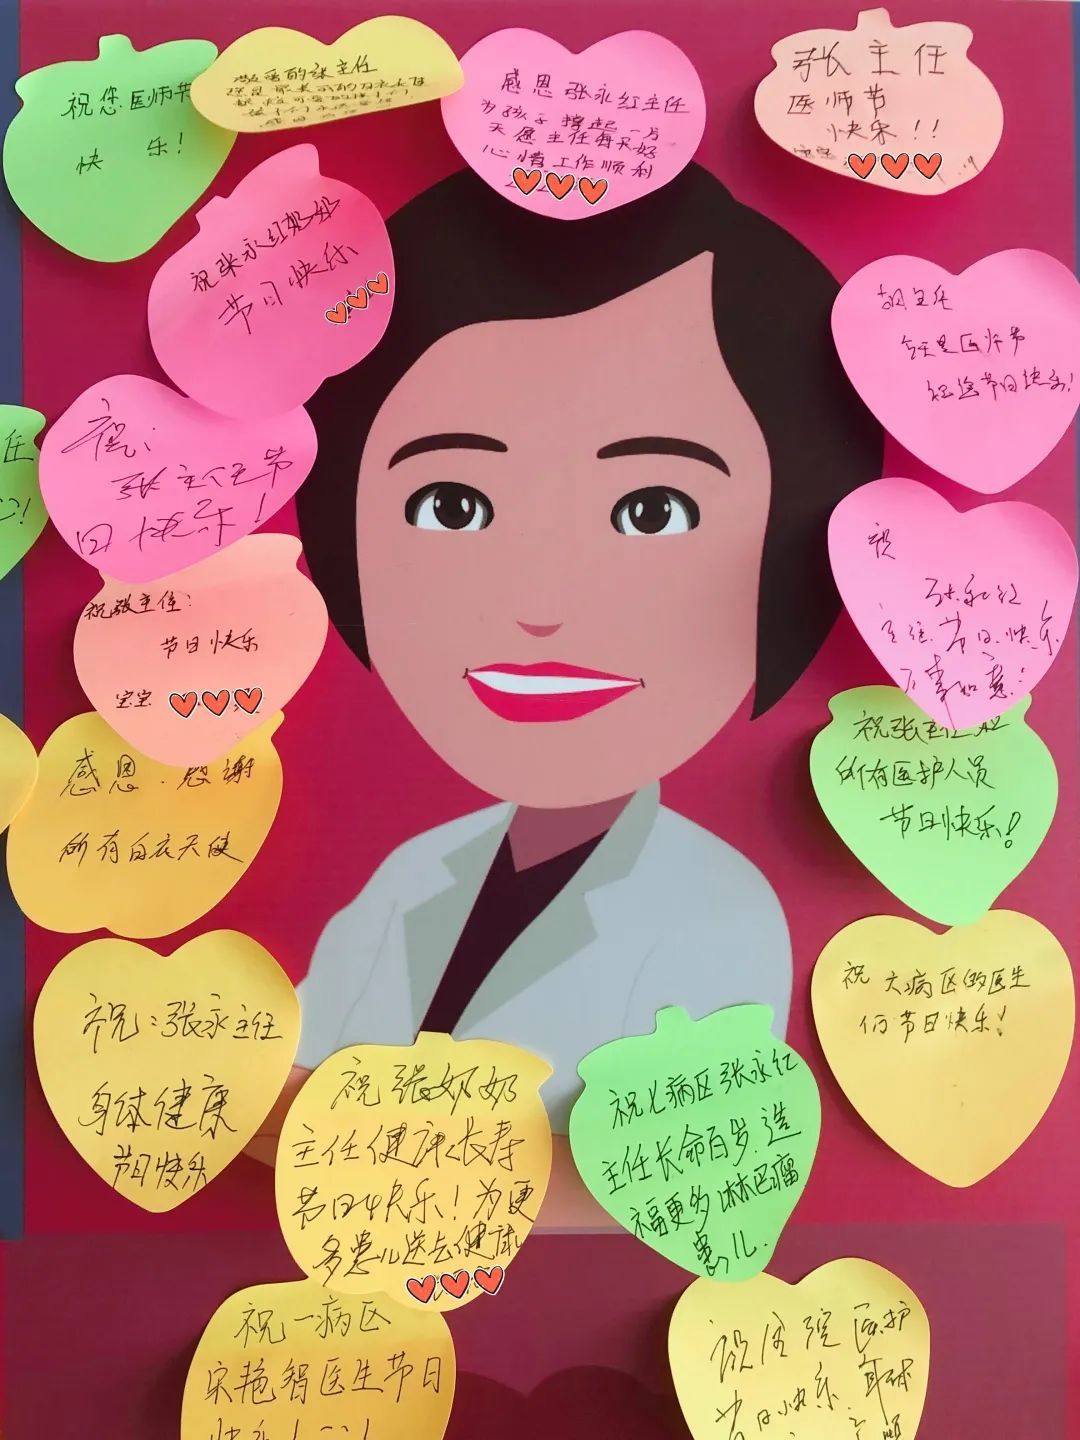 祝您医师节
快乐!
敬爱的张主任
感恩张永红主任
为孩子撑起一方
天愿主任每天好
心情工作顺利
张主任
医师节
快乐!!
祝张永红奶奶
节日快乐
胡主任
今天是医师节
祝您节日快乐!
祝:
张主任节
日快乐!
任
祝
张永红
主任节日快乐
万事如意:
祝张主任:
节日快乐
宝宝
祝张主任和
所有医护人员
节日快乐!
感恩.感谢
所有白衣天使
祝大病区的医生
们节日快乐!
祝:张永主任
身体健康
节日快乐
祝张奶奶
主任健康长寿
节日快乐!为更
多患儿送去健康
祝七病区张永红
主任长命百岁.造
福更多淋巴瘤
患儿.
祝一病区
宋艳智医生节日
快乐!
祝住院医护
节日快乐.